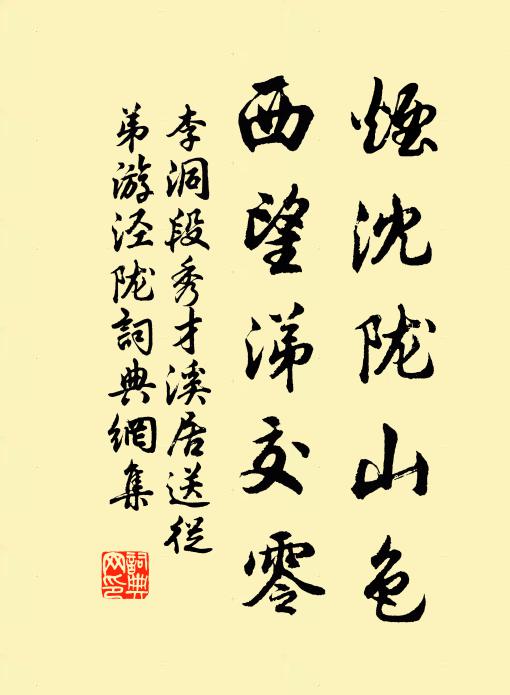 煙沈陇山色
西望涕交零
李洞段秀才溪居送從
弟游泾陇詞典網集
詞典
网印